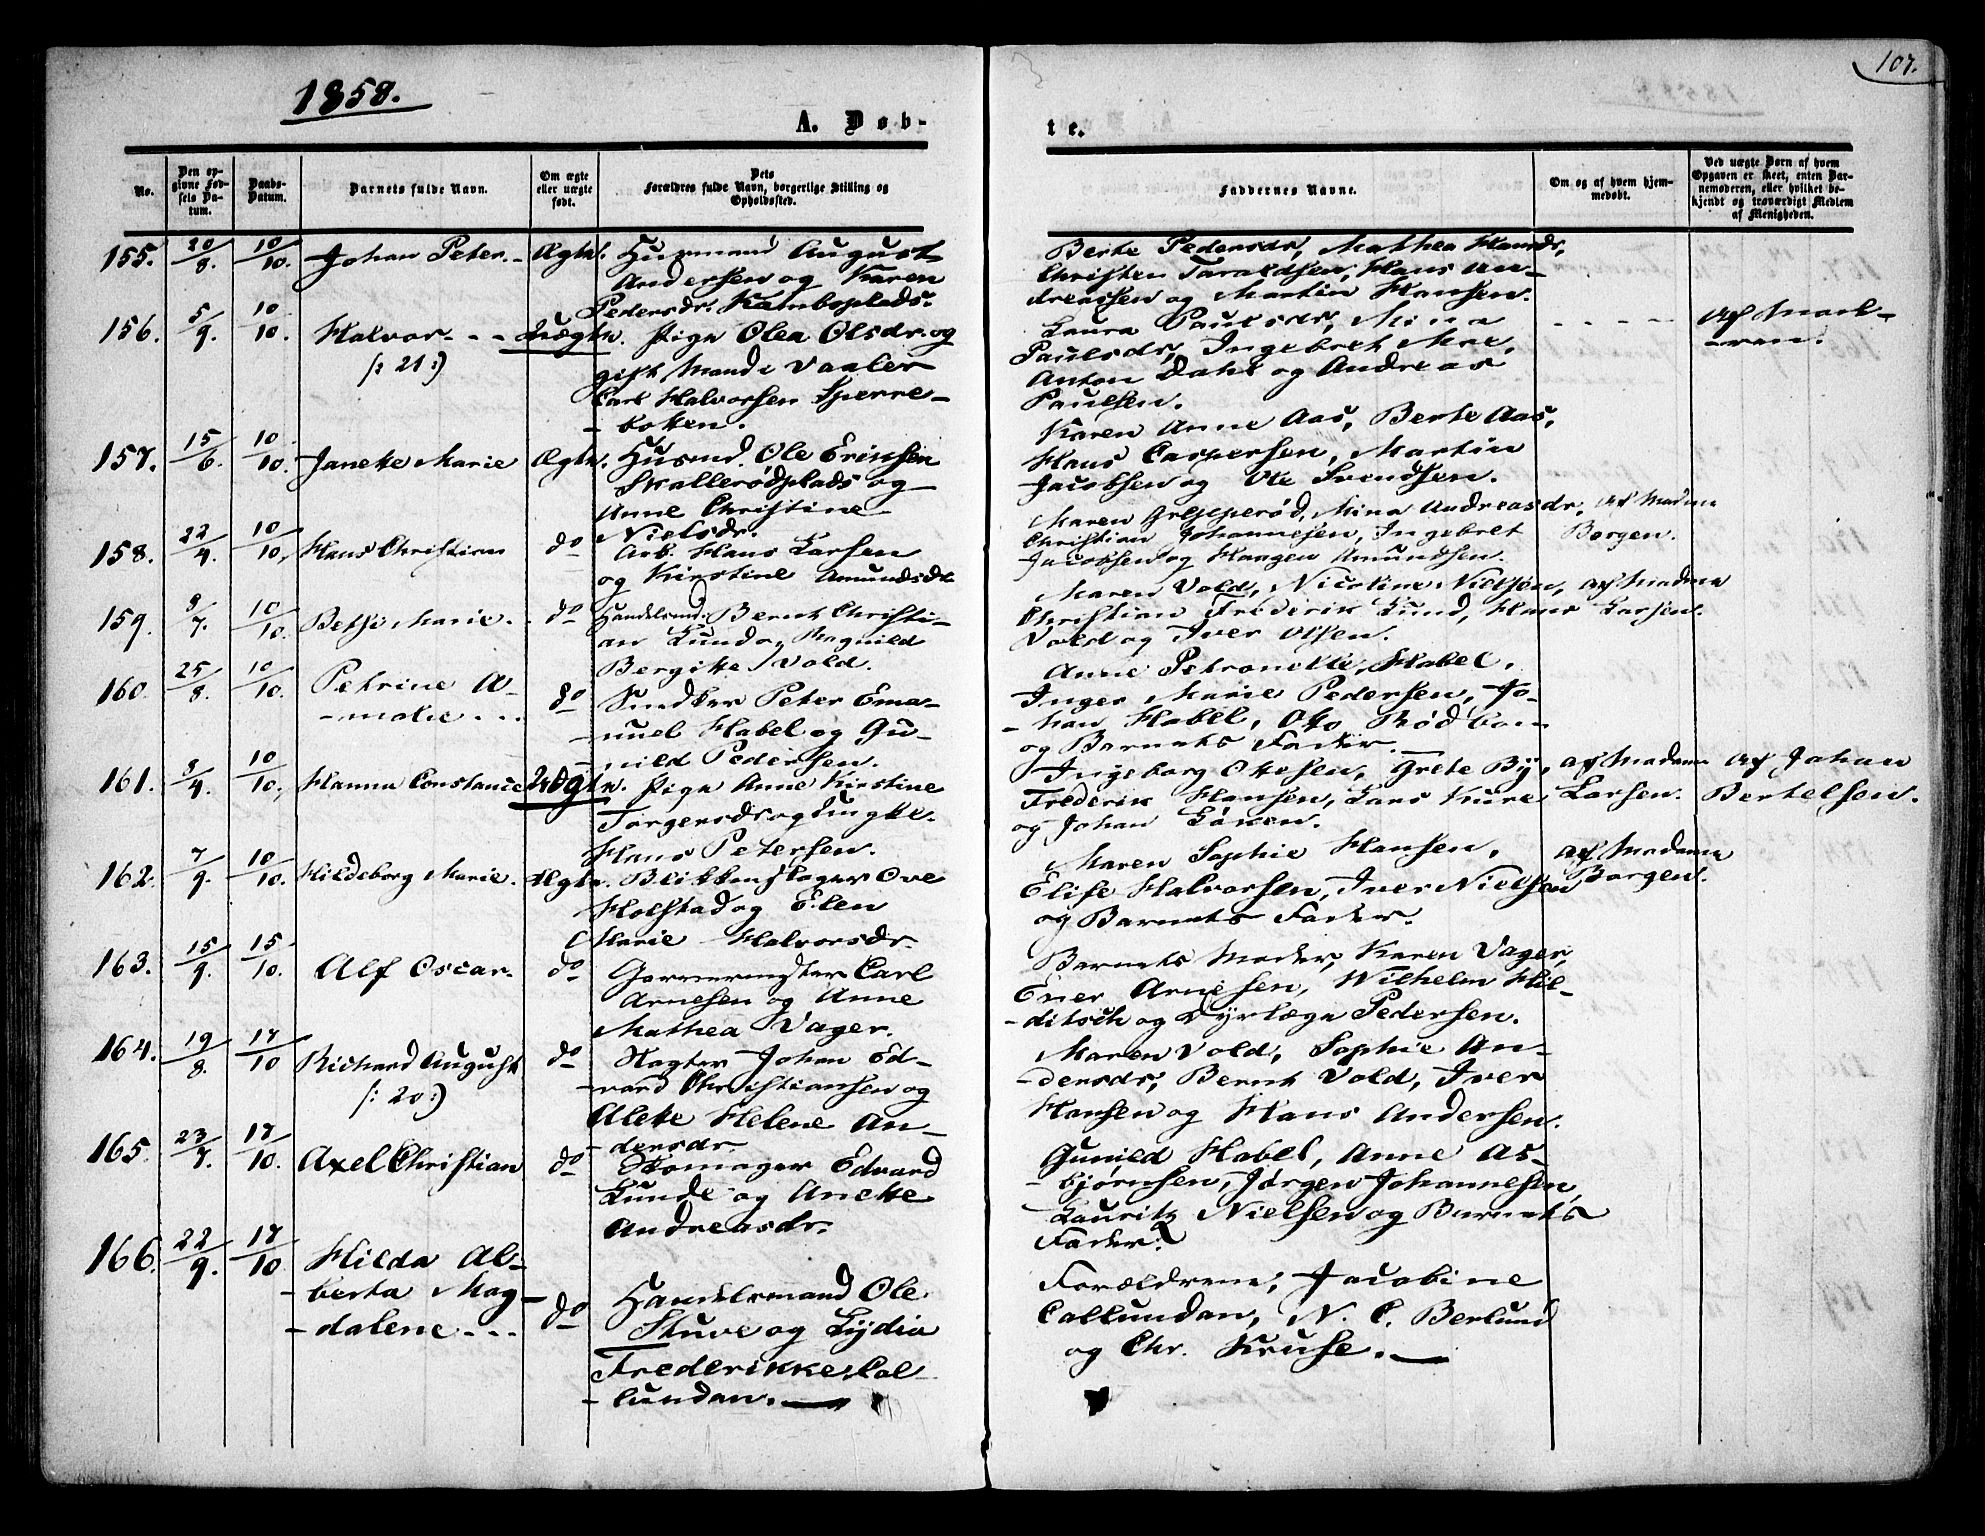 107.
1858.
A. Døb-
te.
No.
Den op-
givne Fød-
sels Da-
tum.
Daabs-
Datum.
Barnets fulde Navn.
Om ægte
eller uægte
født.
Dets
Forældres fulde Navn, borgerlige Stilling og
Opholdssted.
Faddernes Navne.
Om og af hvem hjem-
medøbt.
Ved uægte Børn af hvem
Opgaven er skeet, enten Bar-
nemoderen, eller hvilket be-
kjendt og troværdigt Medlem
af Menigheden.
155. 20/8. 10/10. Johan Peter. Ægte. Husmand August
Andersen og Karen
Pedersdr. Kamboplads.
Berte Pedersdr, Mathea Hansdr,
Christen Taraldsen, Hans An-
dreassen og Martin Hansen.
156. 5/9. 10/10. Halvor
(: 21 :)
Uægte. Pige Olea Olsdr. og
gift Mand i Vaaler
Carl Halvorsen Sperre-
boten.
Laura Paulsdr, Mina
Paulsdr, Ingebret Moe,
Anton Dahl og Andreas
Paulsen.
af Mode-
ren.
157. 15/6. 10/10. Janette Marie Ægte. Husmd. Ole Eriksen
Skallerødplads og
Anne Christine
Nielsdr.
Karen Anne Aas, Berte Aas,
Hans Caspersen, Martin
Jacobsen og Ole Svendsen.
158. 22/4. 10/10. Hans Christian do Arb. Hans Larsen
og Kirstine Amundsdr
Maren Grepperød, Mina Andreasdr,
Christian Johannesen, Ingebret
Jacobsen og Haagen Amundsen.
af Madme
Borgen.
159. 3/7. 10/10. Betsi Marie. do Handelsmd. Bernt Christi-
an Lund og Magnild
Bergitte Vold.
Maren Vold, Nicoline Nielsen,
Christian Frederik Lund, Hans
Vold og Iver Olsen.
af Madme
Larsen.
160. 25/8. 10/10. Petrine A-
malie
do Snedker Peter Ema-
nuel Habel og Gu-
nild Pedersen.
Anne Petronelle Habel,
Inger Marie Pedersen, Jo-
han Habel, Otto Rødbon
og Barnets Fader.
161. 3/4. 10/10. Hanna Constance Uægte. Pige Anne Kirstine
Torgersdr og Ungke.
Hans Petersen.
Ingeborg Ottesen, Grete By,
Frederik Hansen, Lars Kure
og Johan
af Madame
Larsen.
af Johan
Bertelsen.
162. 7/9. 10/10. Hildeborg Marie. Ægte. Blikkenslager Ove
Holstad og Elen
Marie Halvorsdr.
Maren Sophie Hansen,
Elise Halvorsen, Iver Nielsen
og Barnets Fader.
af Madame
Borgen.
163. 15/9. 15/10. Alf Oscar. do Garvermester Carl
Arnesen og Anne
Mathea Vager.
Barnets Moder, Karen Vager,
Ener Arnesen, Wilhelm Hil-
ditsch og Dyrlæge Pedersen.
164. 19/8. 17/10 Richard August
(: 20 :)
do Slagter Johan Ed-
vard Christiansen og
Alette Helene An-
dersdr.
Maren Vold, Sophie An-
dersdr, Bernt Vold, Iver
Hansen og Hans Andersen.
165. 23/7. 17/10. Axel Christian do Skomager Edvard
Lunde og Anette
Andreasdr.
Gunild Habel, Anne As-
bjørnsen, Jørgen Johannesen,
Lauritz Nielsen og Barnets
Fader.
166. 22/9. 17/10. Hilda Al-
berta Mag-
dalene
do Handelsmand Ole
Stuve og Lydia
Frederikke Cal-
lundan.
Forældrene, Jacobine
Callundan, N. C. Berlund
og Chr. Kruse.